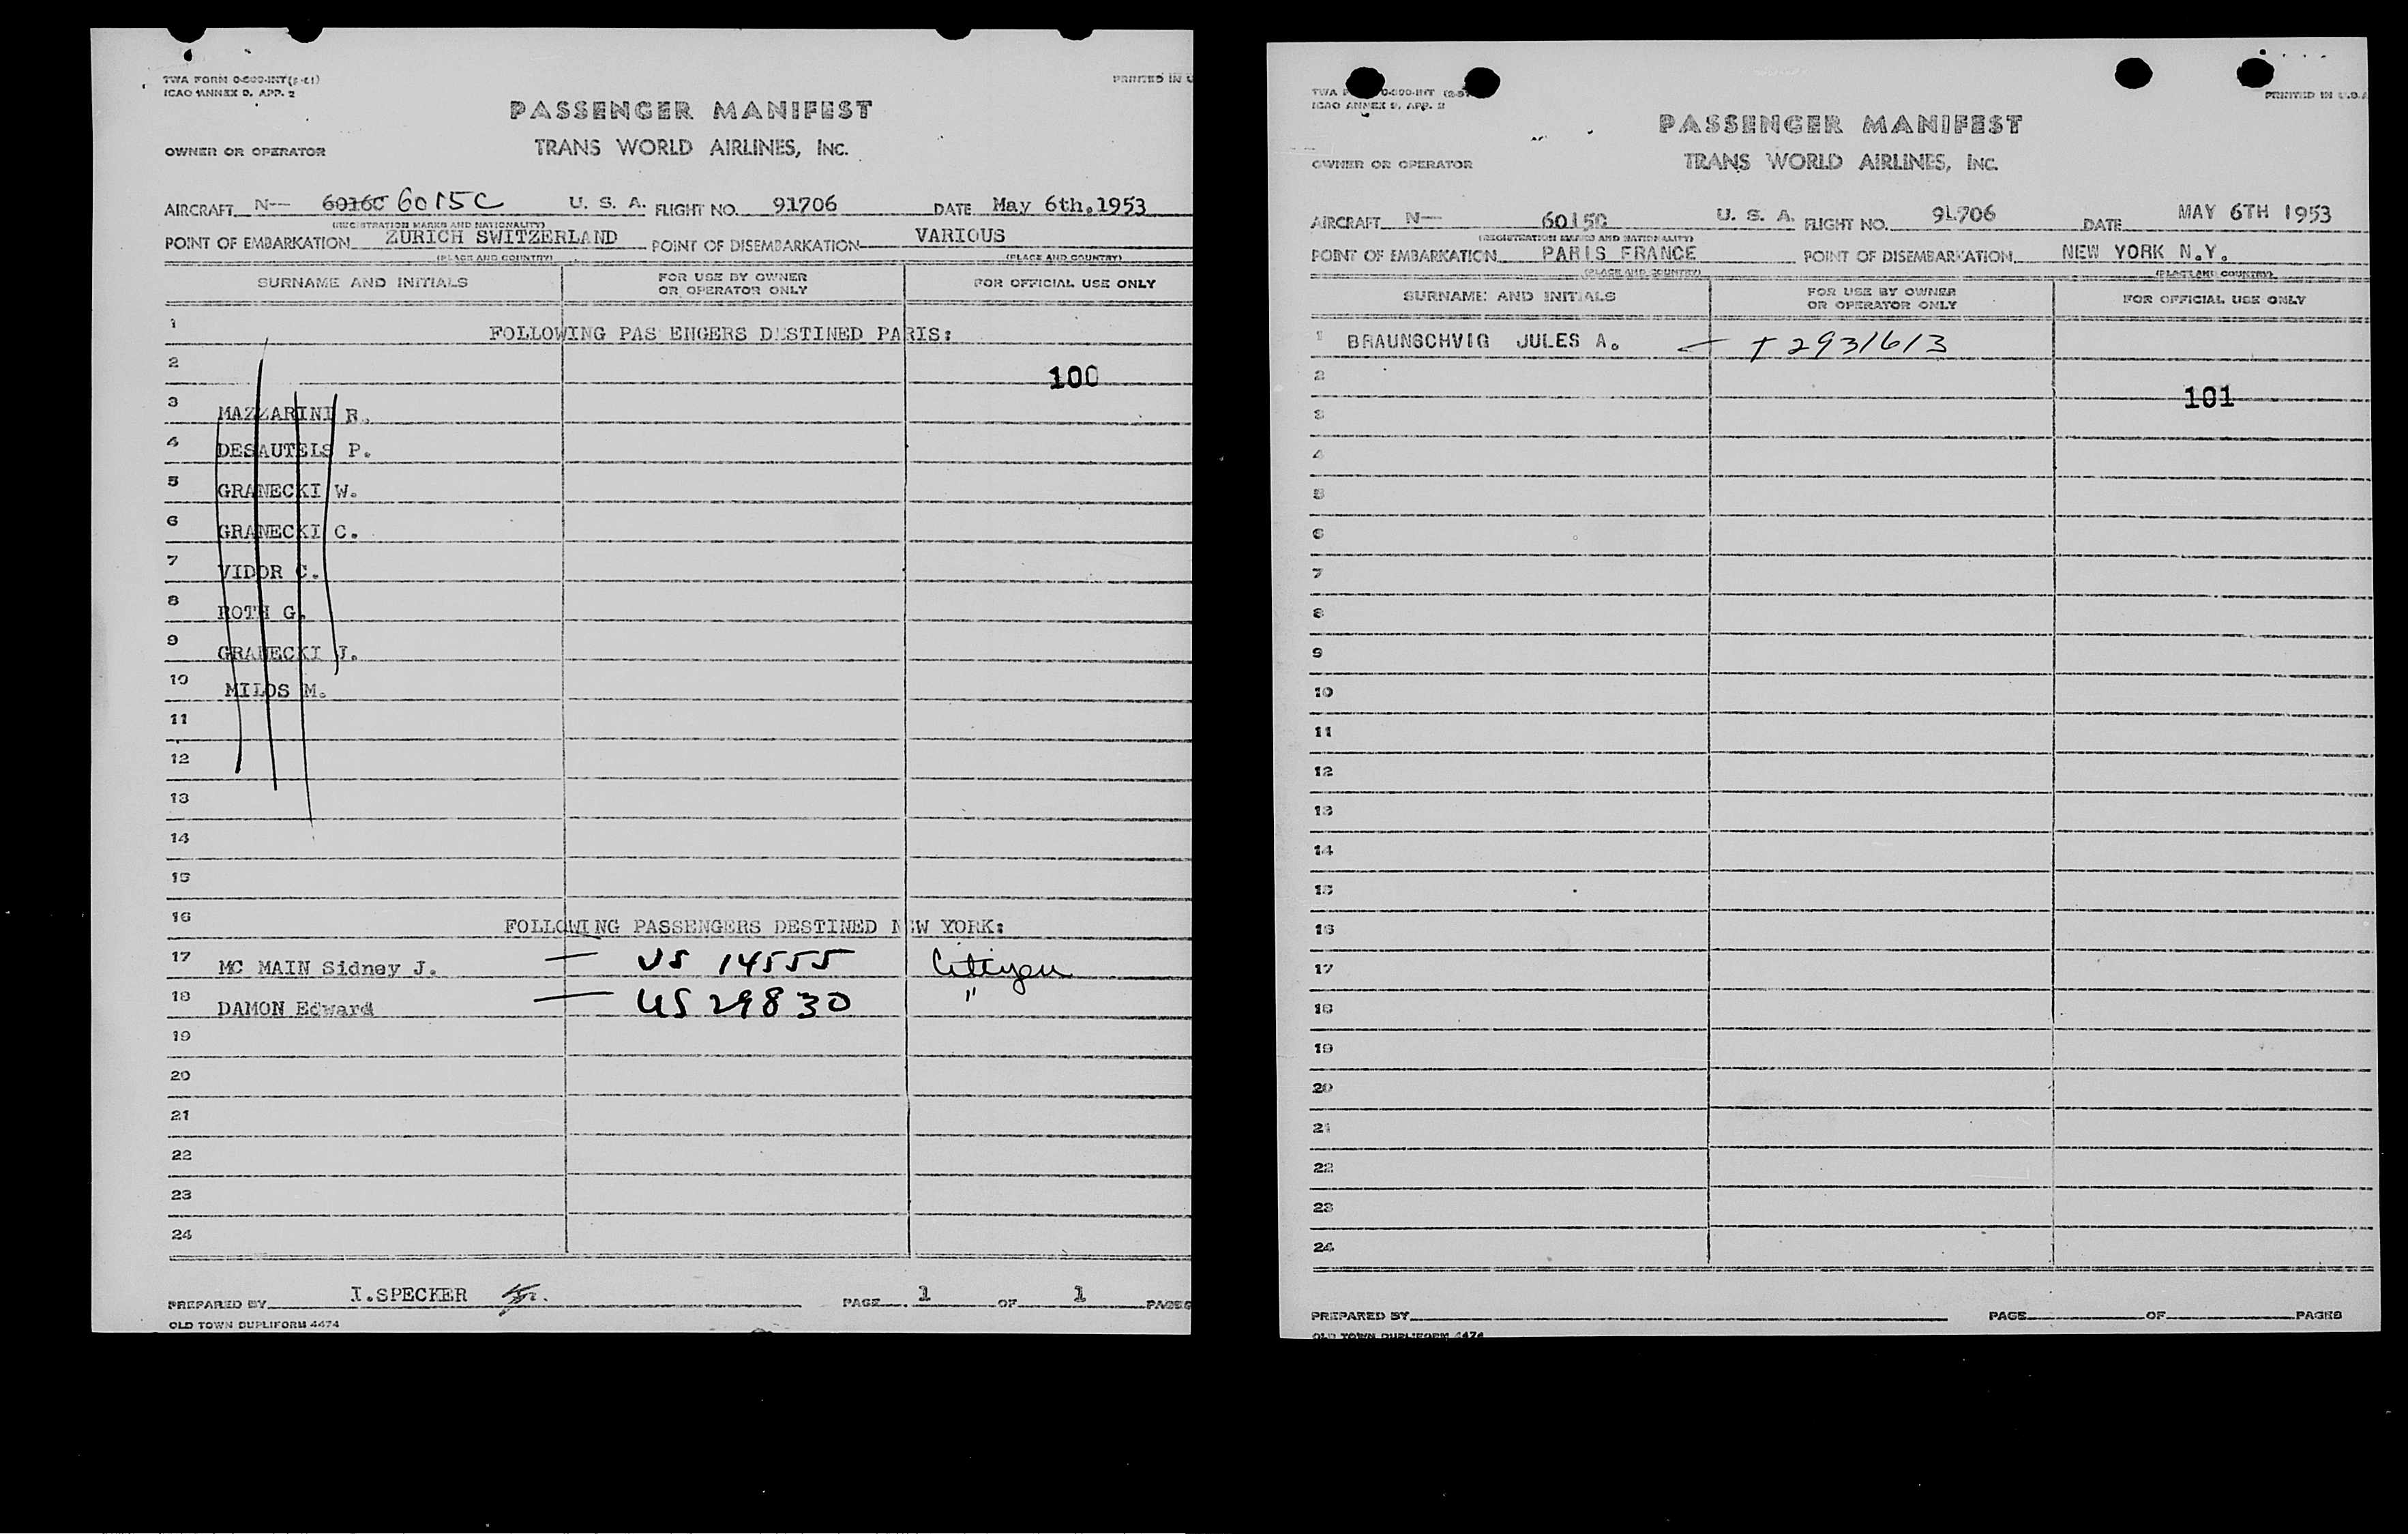 TWA FORM
ICAO ANNEX 9, APP. 2
PRINTED IN U
PASSENGER MANIFEST
TRANS WORLD AIRLINES, INC.
OWNER OR OPERATOR
AIRCRAFT N-- 6016C 6015C U. S. A. FLIGHT NO. 91706 DATE May 6th.1953
(REGISTRATION MARKS AND NATIONALITY)
POINT OF EMBARKATION ZURICH SWITZERLAND POINT OF DISEMBARKATION VARIOUS
(PLACE AND COUNTRY) (PLACE AND COUNTRY)
SURNAME AND INITIALS FOR USE BY OWNER OR OPERATOR ONLY FOR OFFICIAL USE ONLY
1 FOLLOWING PAS ENGERS D STINED PARIS:
2 100
3 MAZZARINI R.
4 DESAUTELS P.
5 GRANECKI W.
6 GRANECKI C.
7 VIDOR C.
8 ROTH G.
9 GRANECKI J.
10 MILOS M.
11
12
13
14
15
16 FOLLOWING PASSENGERS DESTINED NEW YORK:
17 MC MAIN Sidney J. — US 14555 Citizen
18 DAMON Edward — US 29830 "
19
20
21
22
23
24
PREPARED BY I.SPECKER PAGE 1 OF 1 PAGES
OLD TOWN DUPLIFORM 4474
TWA
ICAO ANNEX 9, APP. 2
PRINTED IN U.S.A
PASSENGER MANIFEST
TRANS WORLD AIRLINES, INC.
OWNER OR OPERATOR
AIRCRAFT N-- 6015C U. S. A. FLIGHT NO. 91706 DATE MAY 6TH 1953
(REGISTRATION MARKS AND NATIONALITY)
POINT OF EMBARKATION PARIS FRANCE POINT OF DISEMBARKATION NEW YORK N.Y.
(PLACE AND COUNTRY) (PLACE AND COUNTRY)
SURNAME AND INITIALS FOR USE BY OWNER OR OPERATOR ONLY FOR OFFICIAL USE ONLY
1 BRAUNSCHVIG JULES A. — T 2931613
2
3 101
4
5
6
7
8
9
10
11
12
13
14
15
16
17
18
19
20
21
22
23
24
PREPARED BY PAGE OF PAGES
OLD TOWN DUPLIFORM 4474